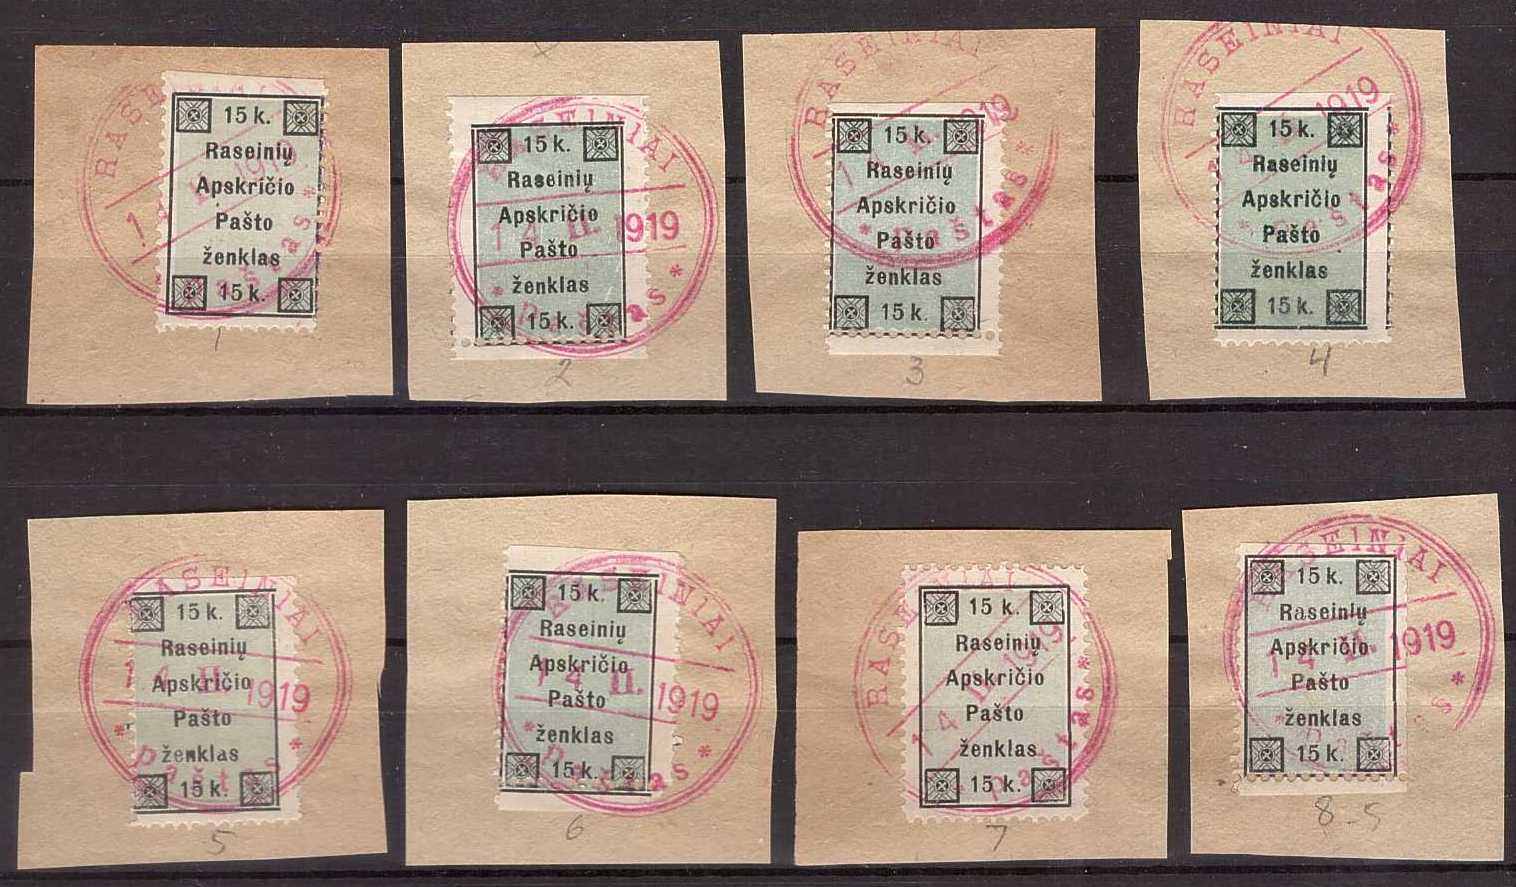 RASEINIAI
15 k.
Raseinių
Apskričio
Pašto
ženklas
15 k.
1919
1
RASEINIAI
15 k.
Raseinių
Apskričio
14 II. 1919
Pašto
ženklas
15 k.
paštas
2
RASEINIAI
15 k.
1919
Raseinių
Apskričio
Pašto
paštas
ženklas
15 k.
3
RASEINIAI
1919
15 k.
Raseinių
Apskričio
Pašto
paštas
ženklas
15 k.
4
RASEINIAI
15 k.
Raseinių
Apskričio
14 II. 1919
Pašto
ženklas
paštas
15 k.
5
RASEINIAI
15 k.
Raseinių
Apskričio
14 II. 1919
Pašto
ženklas
paštas
15 k.
6
RASEINIAI
15 k.
Raseinių
Apskričio
14 II. 1919
Pašto
ženklas
paštas
15 k.
7
RASEINIAI
15 k.
Raseinių
Apskričio
1919
Pašto
ženklas
paštas
15 k.
8-5